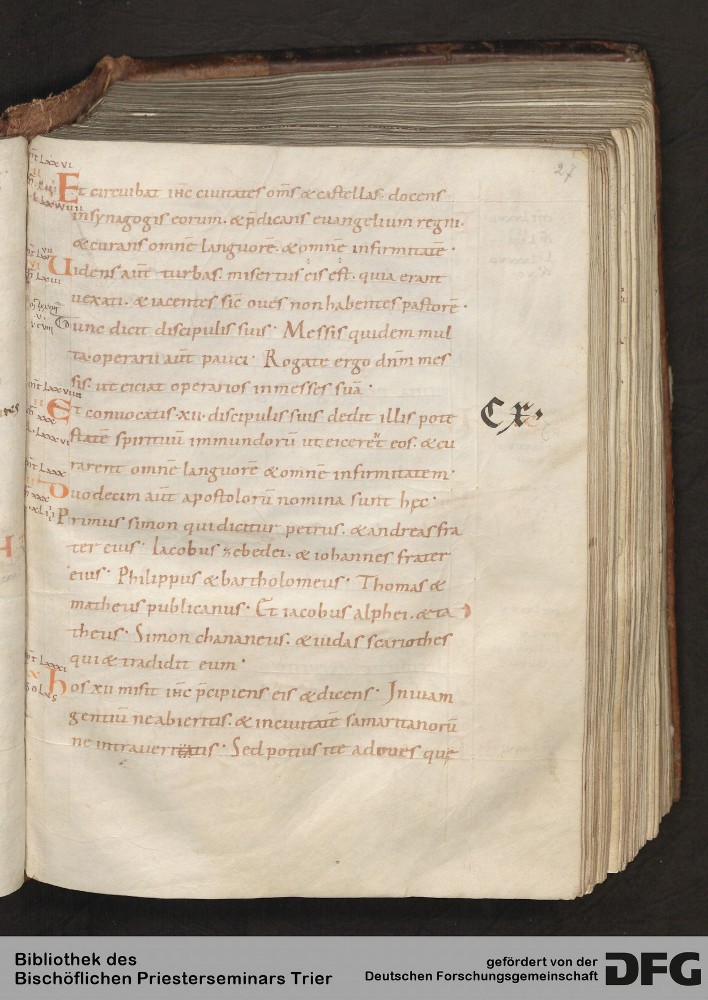 27
Et circuibat ihc̄ ciuitates om̄s & castellas docens
in synagogis eorum · & p̄dicans euangelium regni ·
& curans omnē languorē · & omnē infirmitatē ·
Uidens aut̄ turbas · misertus eis est · quia erant
uexati · & iacentes sic̄ oues non habentes pastorē ·
Tunc dicit discipulis suis · Messis quidem mul
ta · operarii aut̄ pauci · Rogate ergo dn̄m mes
sis · ut eiciat operarios in messes suā ·
Et conuocatis · xii · discipulis suis dedit illis pote
statē spirituū immundorū ut eicerent eos · & cu
rarent omnē languorē & omnē infirmitatem ·
Duodecim aut̄ apostolorū nomina sunt hęc ·
Primus simon qui dicitur petrus · & andreas fra
ter eius · Iacobus zebedei · & iohannes frater
eius · Philippus & bartholomeus · Thomas &
matheus publicanus · Et iacobus alphei · & ta
theus · Simon chananeus · & iudas scariothes
qui & tradidit eum ·
hos xii misit ihc̄ p̄cipiens eis & dicens · In uiam
gentiū ne abieritis · & in ciuitatē samaritanorū
ne intraueritis · Sed potius ite ad oues quę
mt̄ Lxxvi
mt̄ Lxxviiii
mt̄ Lxxx
mt̄ Lxxxi
CX·
Bibliothek des
Bischöflichen Priesterseminars Trier
gefördert von der
Deutschen Forschungsgemeinschaft
DFG